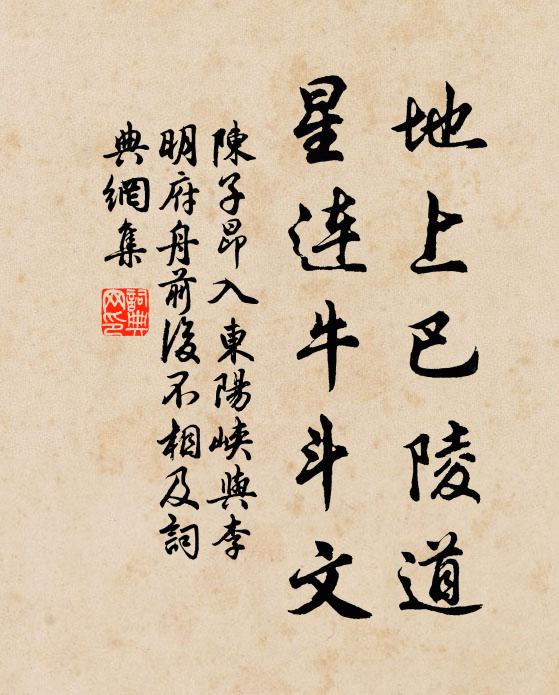 地上巴陵道
星连牛斗文
陳子昂入東陽峽與李
明府舟前後不相及詞
典網集
詞典
网印